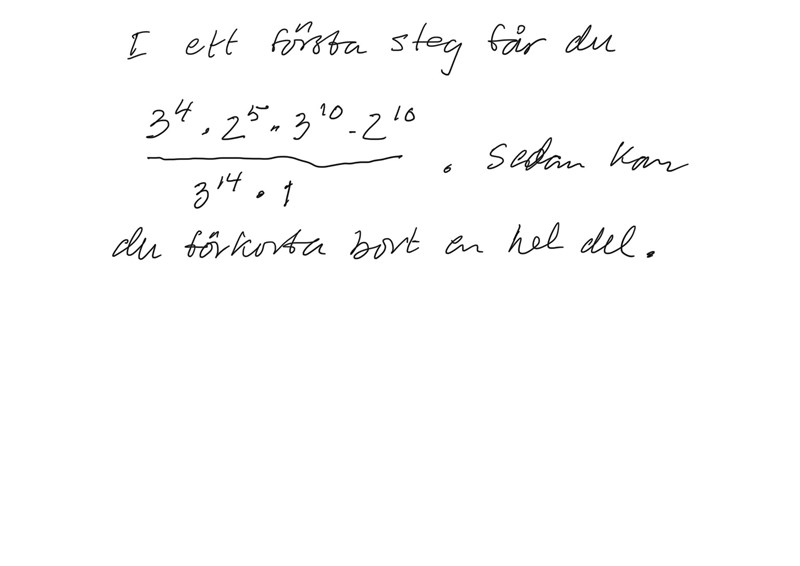 I ett första steg får du
3⁴ · 2⁵ · 3¹⁰ · 2¹⁰
3¹⁴ · 1
. Sedan kan
du förkorta bort en hel del.